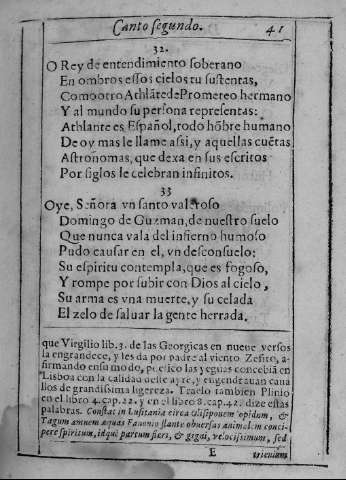 Canto segundo. 41
32.
O Rey de entendimiento soberano
En ombros essos cielos tu sustentas,
Como otro Athlãte de Prometeo hermano
Y al mundo su persona representas:
Athlante es Español, todo hõbre humano
De oy mas le llame assi, y aquellas cuẽtas
Astrónomas, que dexa en sus escritos
Por siglos le celebran infinitos.
33
Oye, Señora vn santo valeroso
Domingo de Guzman, de nuestro suelo
Que nunca vala del infierno humoso
Pudo causar en el, vn desconsuelo:
Su espiritu contempla, que es fogoso,
Y rompe por subir con Dios al cielo,
Su arma es vna muerte, y su celada
El zelo de saluar la gente herrada.
que Virgilio lib. 3. de las Georgicas en nueue versos
la engrandece, y les da por padre al viento Zefiro, a-
firmando en su modo, que las yeguas concebiã en
Lisboa con la calidad deste ayre, y engendrauan caua
llos de grandissima ligereza. Traelo tambien Plinio
en el libro 4. cap. 22. y en el libro 8. cap. 42. dize estas
palabras. Constat in Lusitania circa Olisiponem opidum, &
Tagum amnem æquas Fauonio flante obuersas animalem conci-
pere spiritum, idque partum fieri, & gigni, velocissimum, sed
E trienium